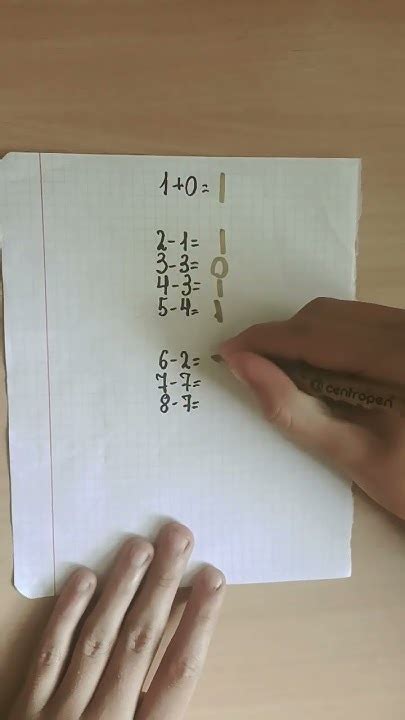 1+0= 1
2-1= 1
3-3= 0
4-3= 1
5-4= 1
6-2=
7-7=
8-7=
centropen